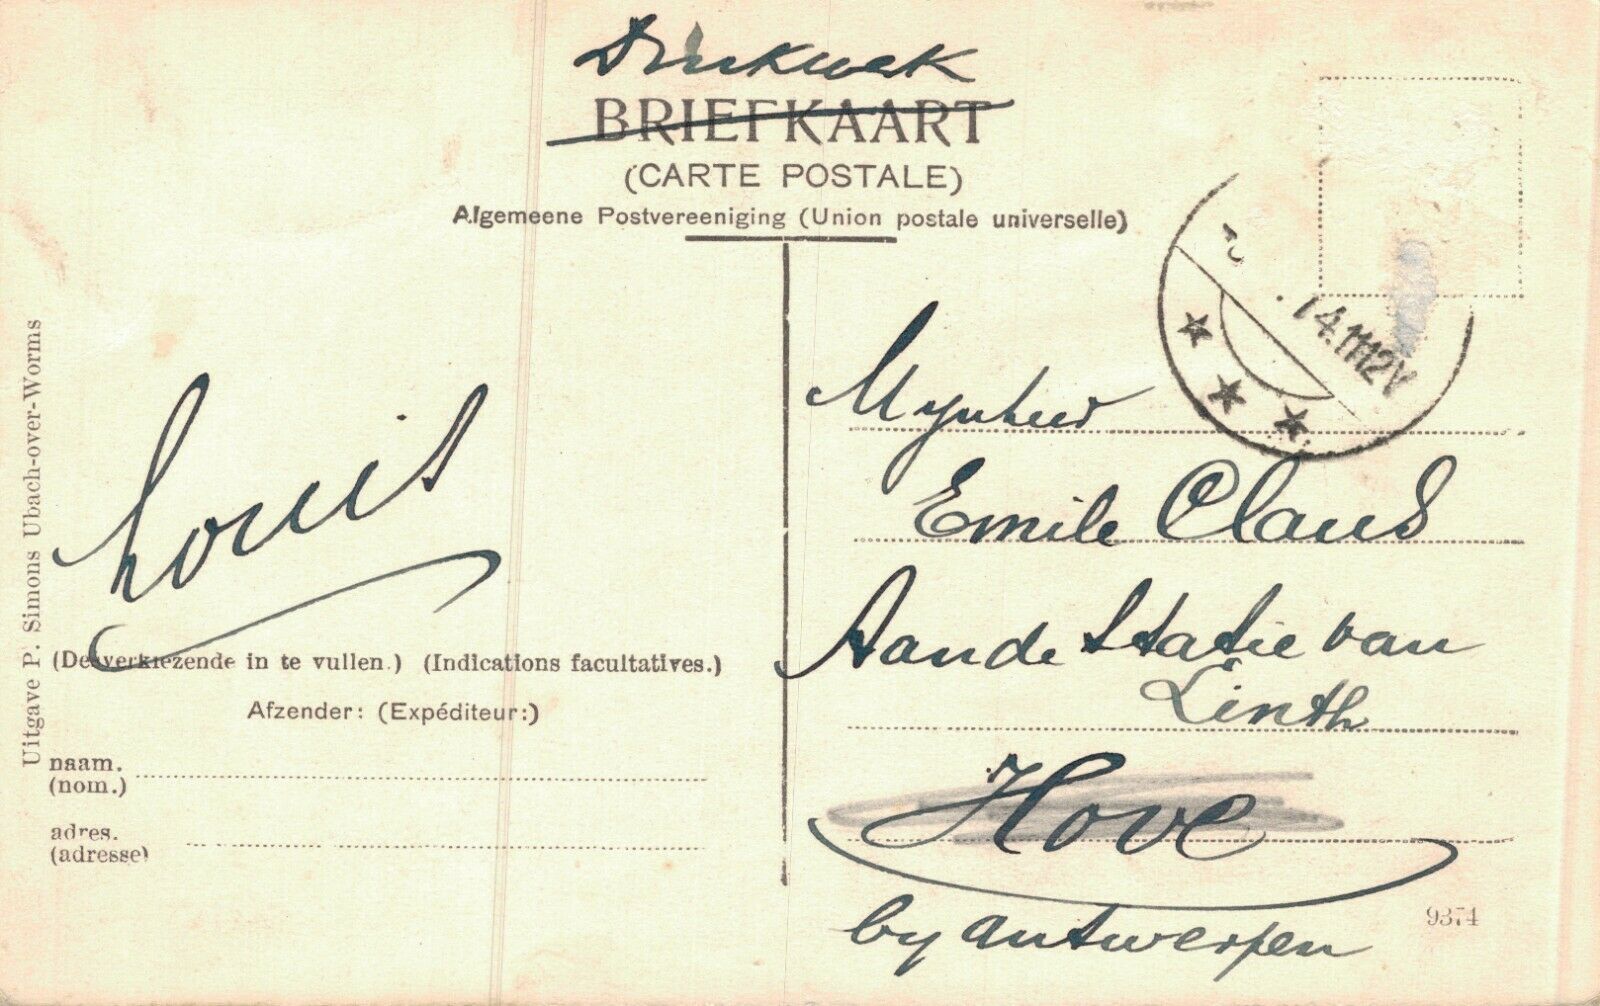 Drukwerk
BRIEFKAART
(CARTE POSTALE)
Algemeene Postvereeniging (Union postale universelle)
4.11 12V
Mynheer
Emile Claus
Aan de Statie van
Linth
Hove
by Antwerpen
9374
Louis
(Desverkiezende in te vullen.) (Indications facultatives.)
Afzender: (Expéditeur:)
naam.
(nom.)
adres.
(adresse)
Uitgave P. Simons Ubach-over-Worms